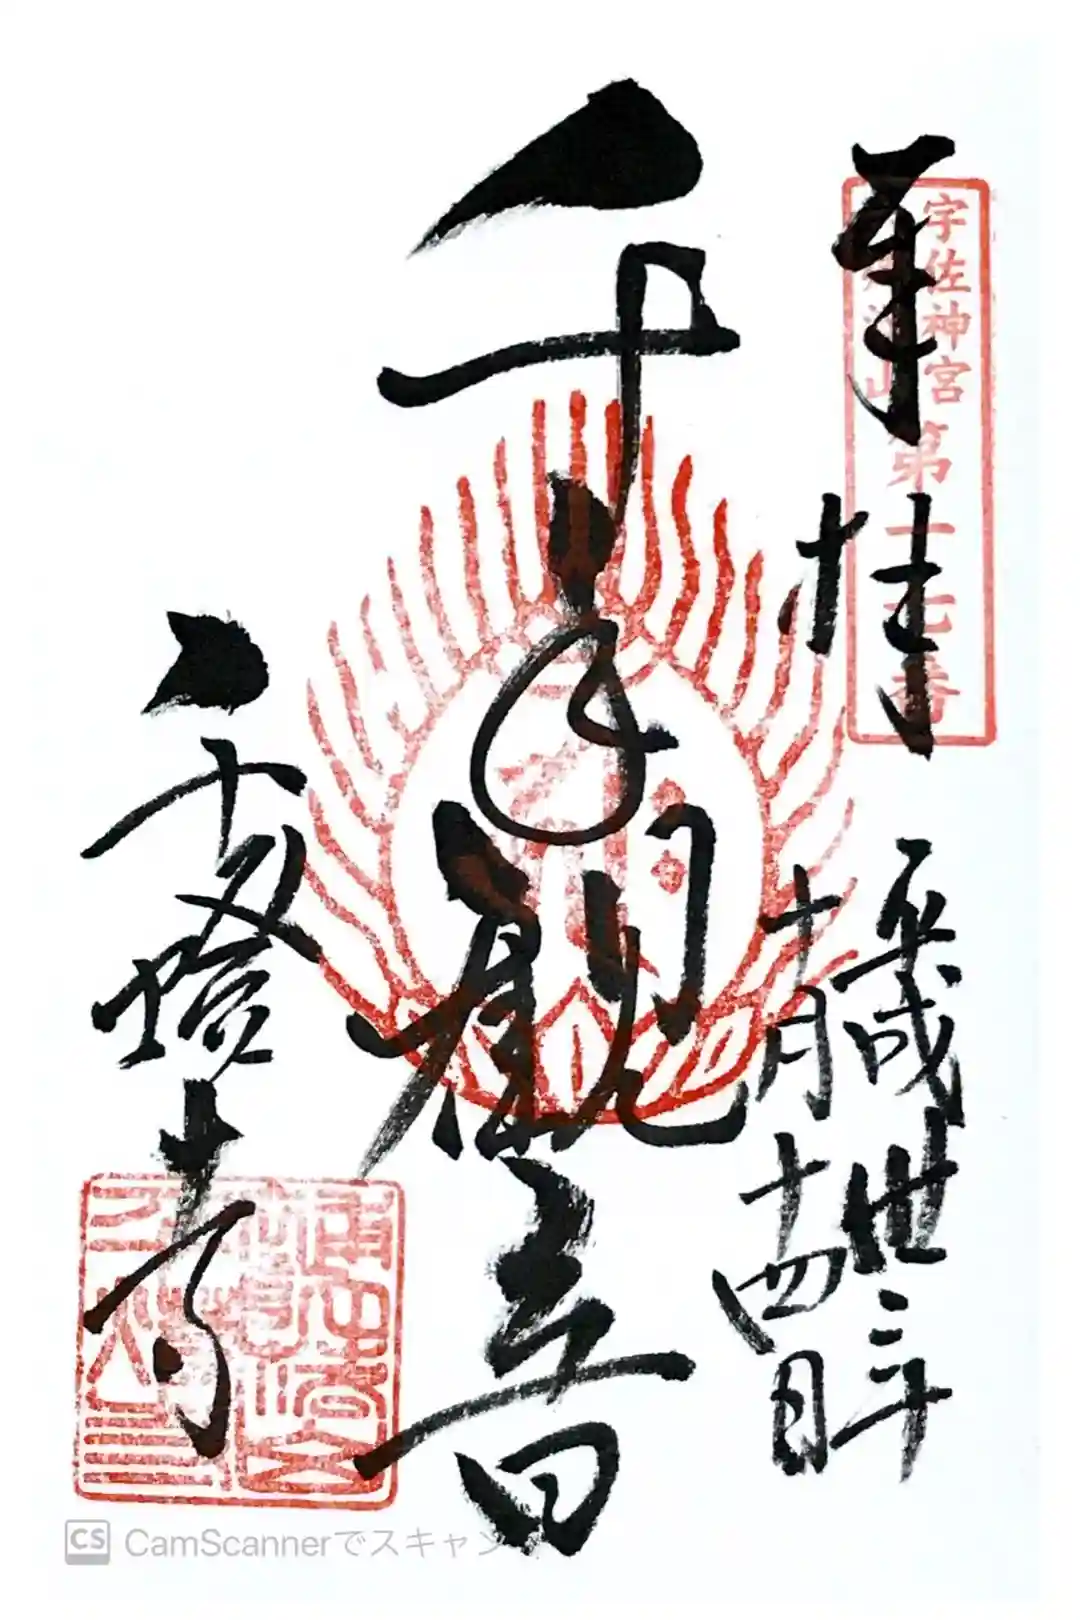 宇佐神宮
第十七番
奉拝
平成廿三年
十月十四日
千手観音
CS CamScannerでスキャン